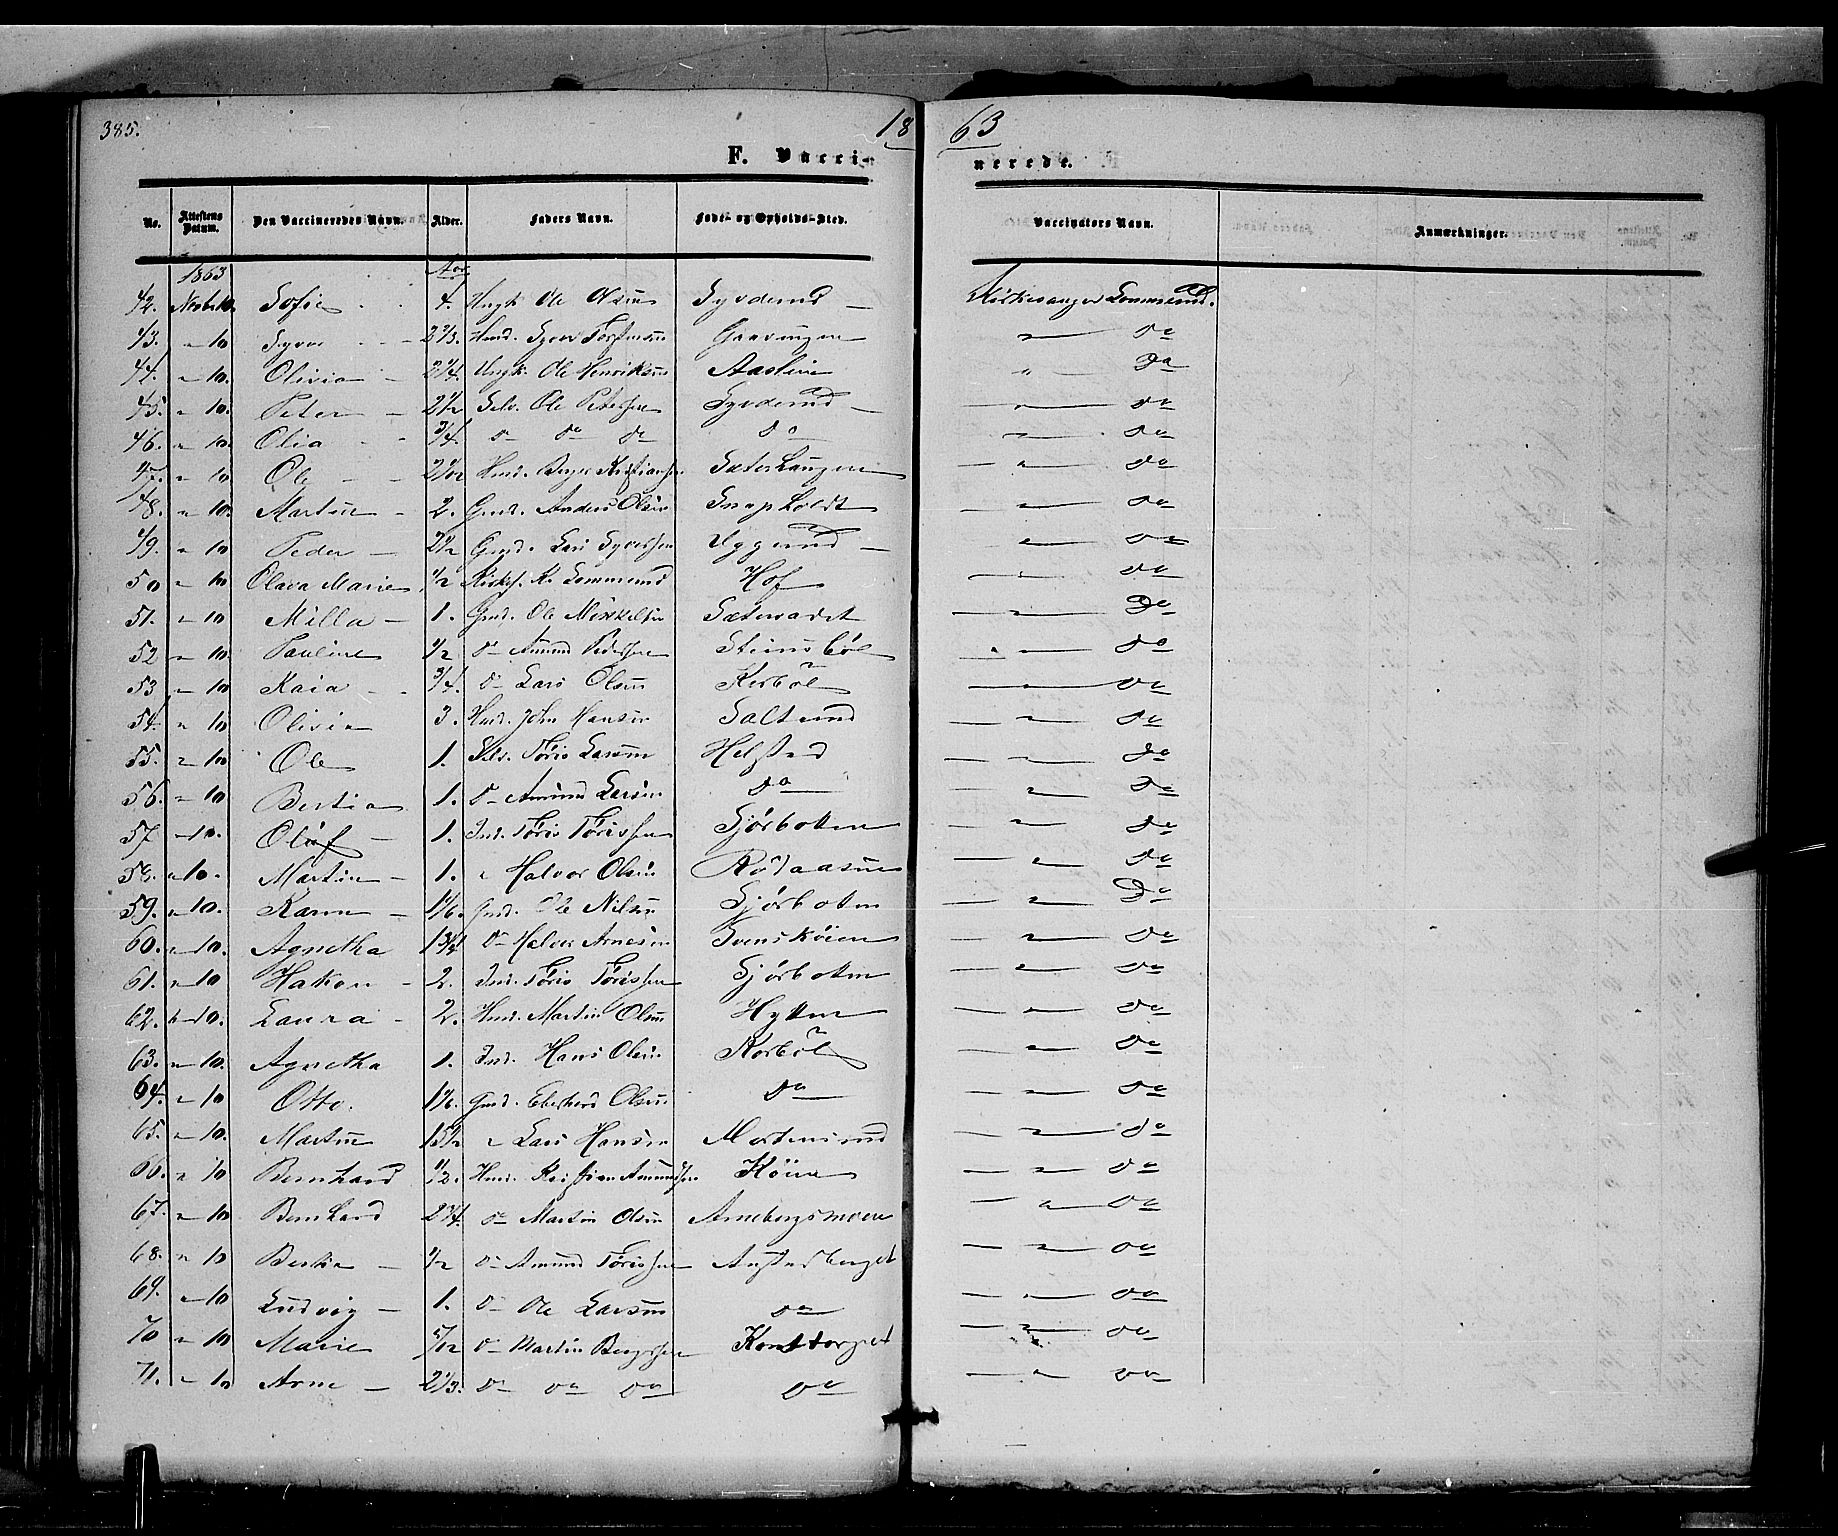 385.
18 63
F. Vacci- nerede.
No. Attestens Datum. Den Vaccineredes Navn. Alder. Faders Navn. Føde- og Opholds-Sted. Vaccinators Navn. Anmærkninger.
1863 Aar
42. Sofie 4. Ungk. Ole Olsen Kirkesanger Lommerud.
43. " 10 Syver 2 2/3. Huusm. Syver Do
44. " 10. Olivia 2 1/4. Ungk. Ole Henriksen Aaslien " Do
45. " 10. Peter 2 1/2 Selv. Ole Petersen " Do
46. " 10. Olia 3/4. Do Do Do Do " Do
47. " 10 Ole Kristiansen " Do
48. " 10. Martin 2. Gmd. Anders Olsen Snapholdt " Do
49. " 10 Peder 2 1/2 Gmd. Lars Syversen Uggerud " Do
50 " 10 Olava Marie 1/2 Kirkes. K. Lommerud Hof " Do
51. " 10 Milla 1. Gmd. Ole Mikkelsen " Do
52 " 10. Pauline 1/2 Do Amund Pedersen Steinsböl " Do
53 " 10 Kaia 3/4. Do Lars Olsen Kirböl " Do
54. " 10 Olivia 3. John Hansen Saltrud " Do
55. " 10 Ole 1. Selv. Töris Larsen Helstad " Do
56. " 10 Bertia 1. Do Amund Larsen Do " Do
57. " 10. Oluf 1. Ind. Töris Törissen Sjörbotten " Do
58. " 10. Martin 1. " Halvor Olsen Rödaasen " Do
59. " 10. Karen 1 1/6. Gmd. Ole Nilsen Sjörbotten " Do
60. " 10. Agnetha 1 3/4 Do Halvor Arnesen Svensköien " Do
61. " 10 Hakon 2. Ind. Töris Törissen Sjörbotten " Do
62. " 10. Laura 2. Martin Olsen Hytten " Do
63. " 10. Agnetha 1. Ind. Hans Olsen Korböl " Do
64. " 10 Otto. 1 1/6. Gmd. Olsen Do " Do
65. " 10. Martin " Lars Hansen Mortensrud " Do
66. " 10 Bernhard 1/2. Kristian Amundsen Köien " Do
67. " 10 Bernhard 2 3/4. Do Martin Olsen Arnebergsmoen " Do
68. " 10 Bertia 1/2 Do Amund Törissen Austadberget " Do
69. " 10 Ludvig 1. Do Ole Larsen Do " Do
70 " 10 Marie 5/12 Do Martin Bergersen Konttorpet " Do
71. " 10 Arne 2 1/3. Do Do Do Do " Do